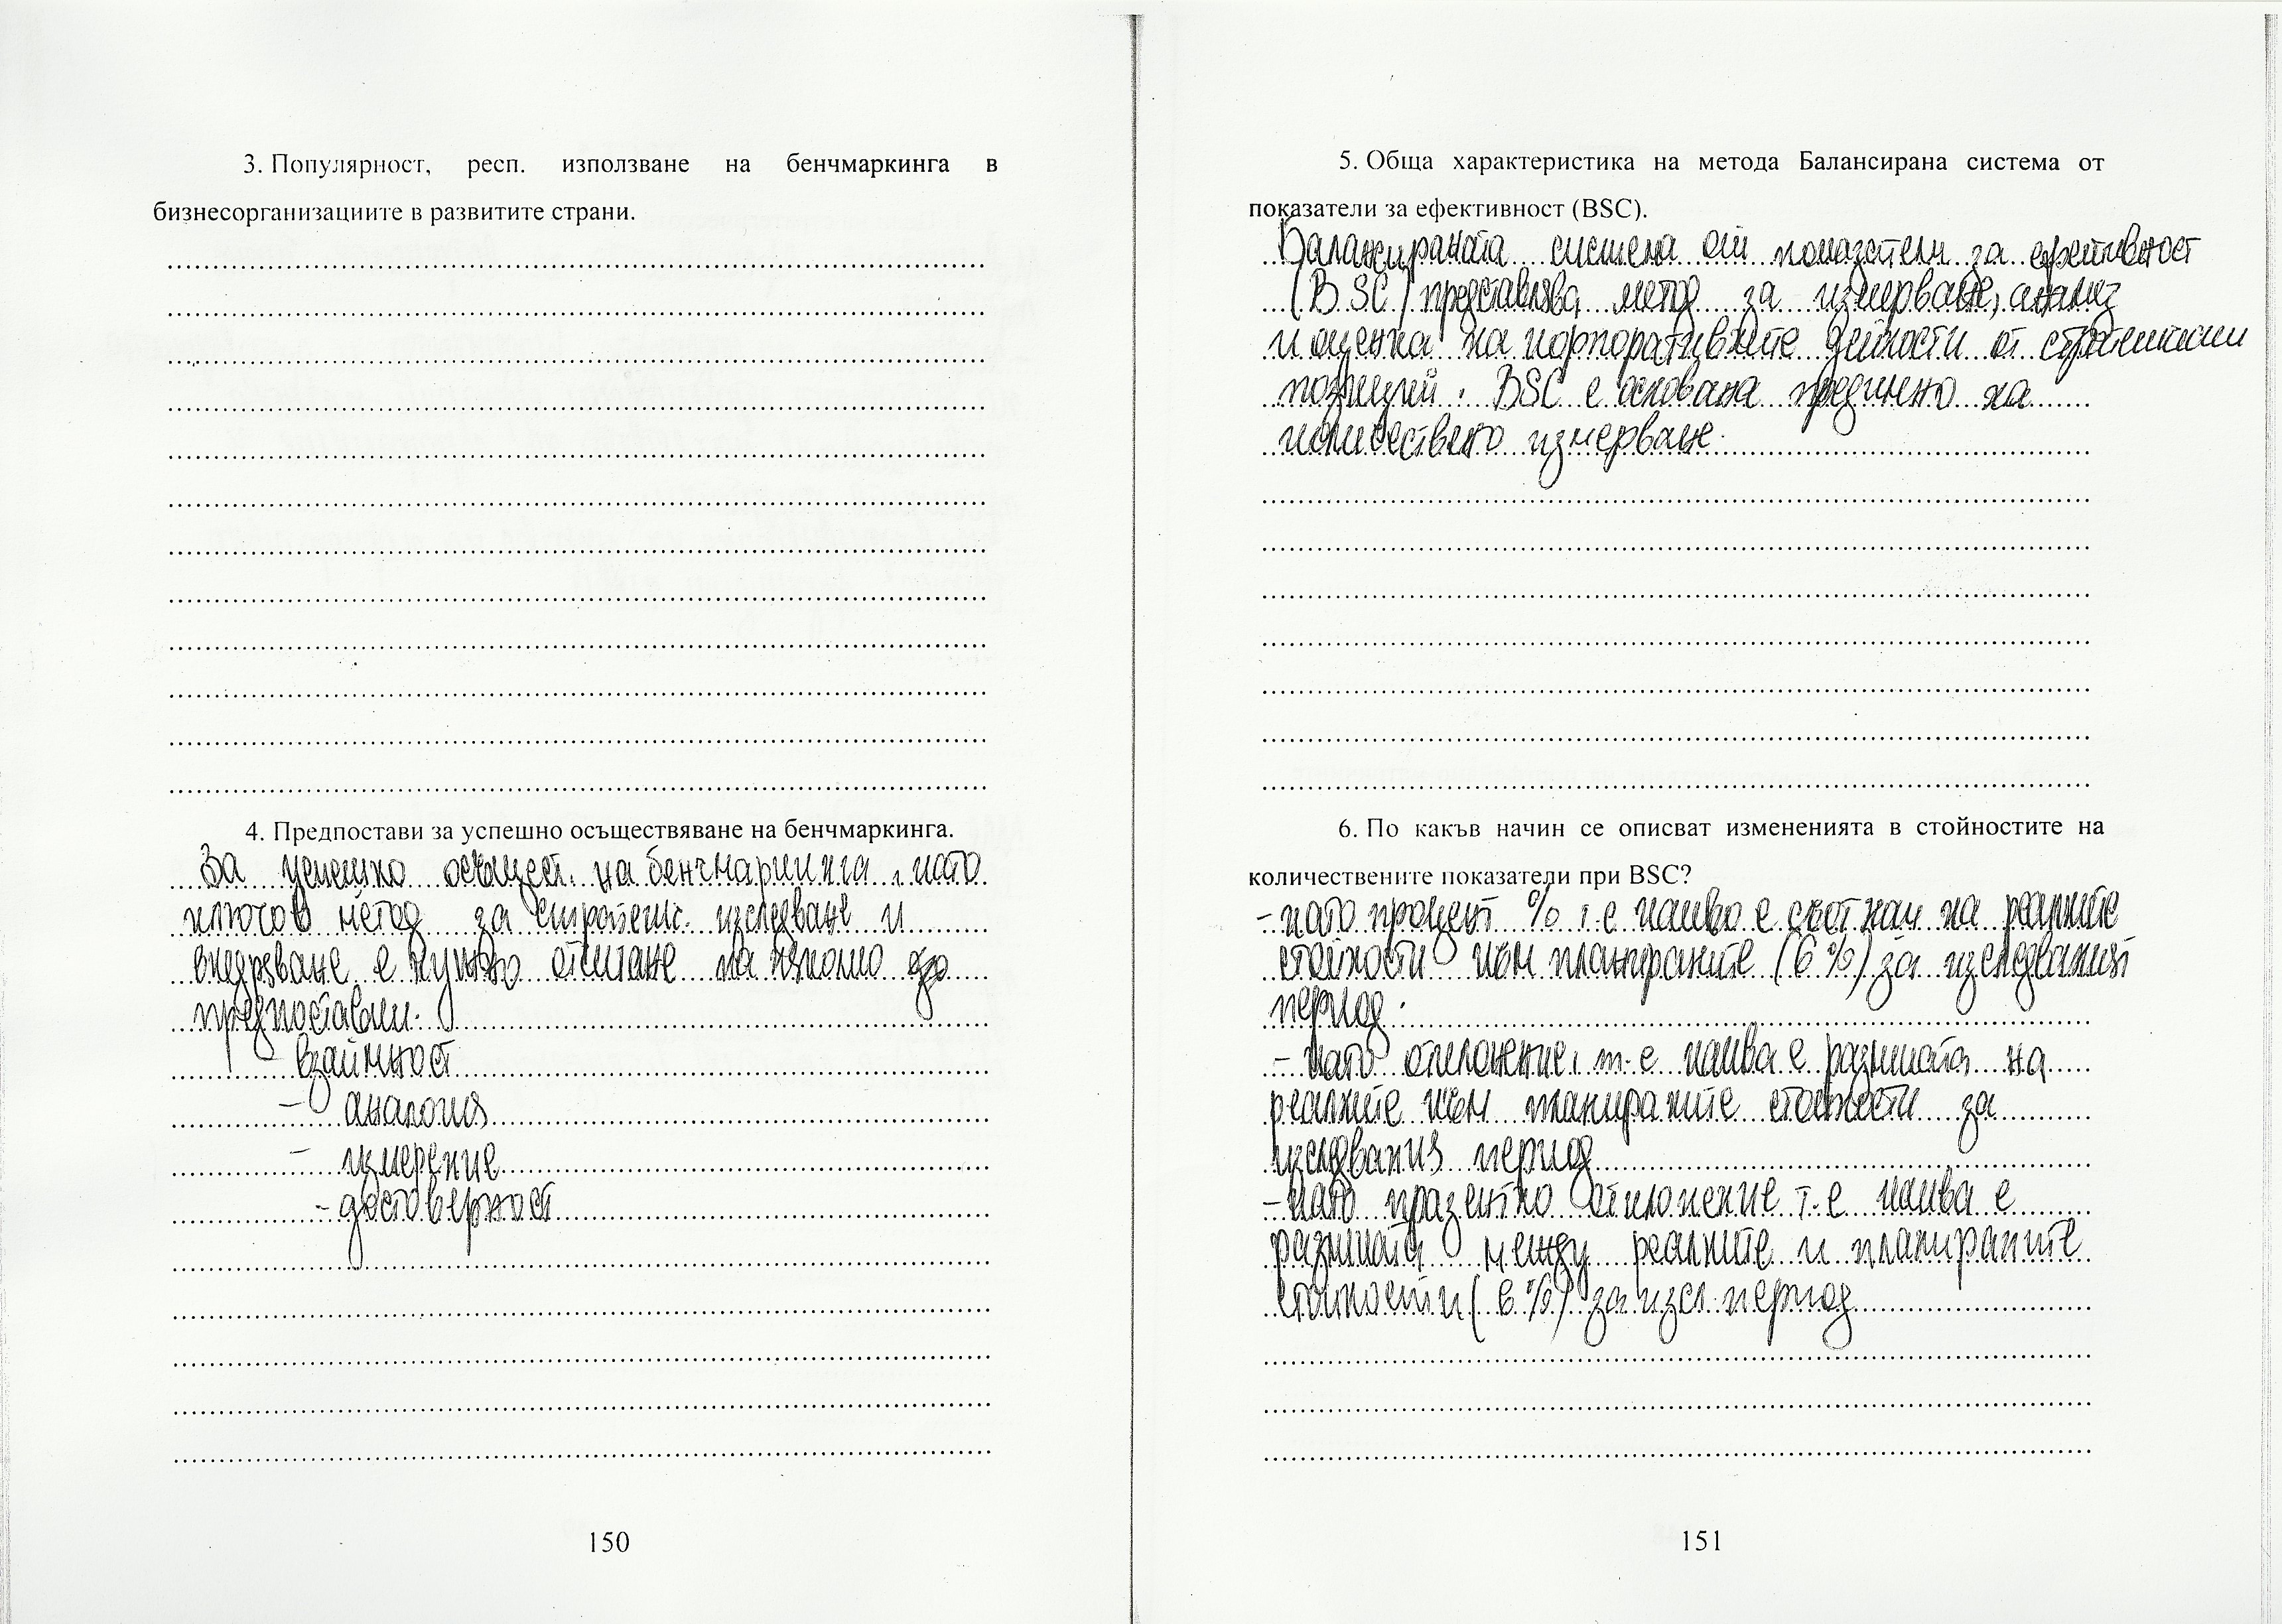 3. Популярност, респ. използване на бенчмаркинга в
бизнесорганизациите в развитите страни.
4. Предпостави за успешно осъществяване на бенчмаркинга.
За успешно осъщест. на бенчмаркинга, като
ключов метод за стратегис. изследване и
внедряване е нужно отчитане на няколко
предпоставки.
- взаимност
- аналогия
- измерение
- достоверност
150
5. Обща характеристика на метода Балансирана система от
показатели за ефективност (BSC).
Балансираната система от показатели за ефективност
(BSC) представлява метод за измерване, анализ
и оценка на корпоративните дейности от стратегически
позиции. BSC е основана предимно на
количествено измерване.
6. По какъв начин се описват измененията в стойностите на
количествените показатели при BSC?
- като процент % т.е какво е съотнош на реалните
стойности към планираните (в %) за изследвания
период.
- като отклонение, т.е каква е разликата на
реалните към планираните стойности за
изследвания период
- като празентно отклонение т.е каква е
разликата между реалните и планираните
стойности (в %) за изсл. период
151